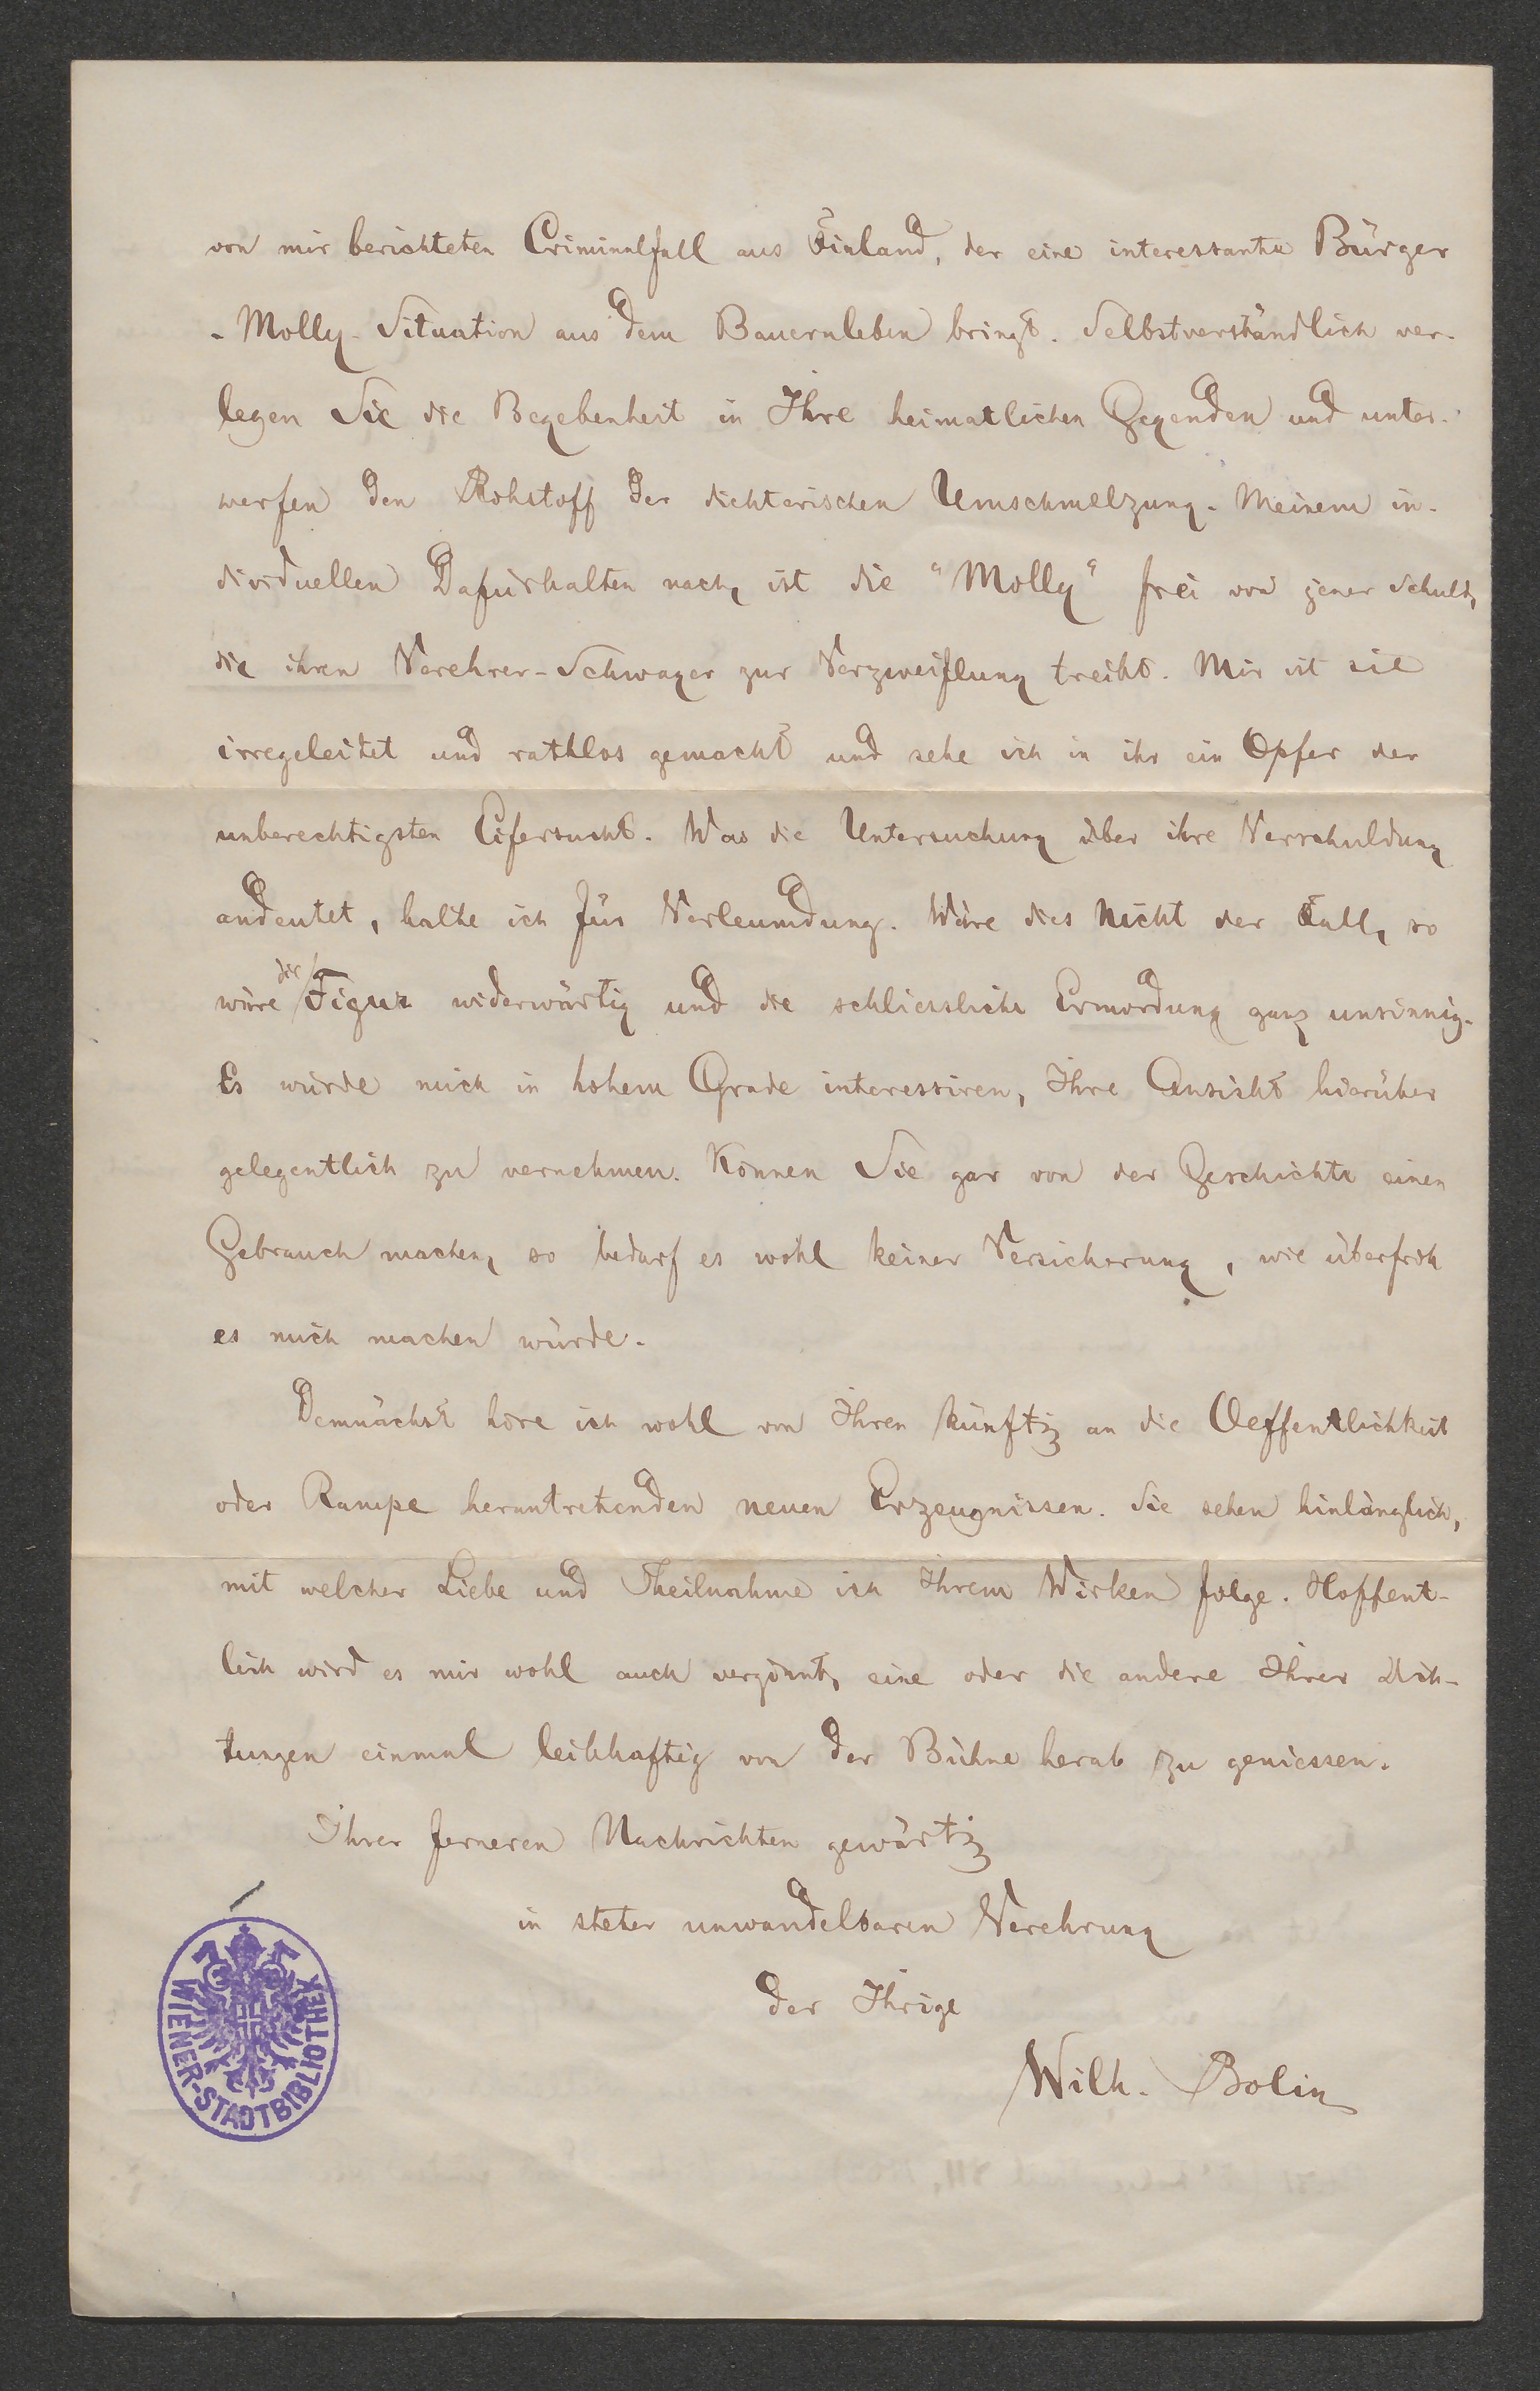 von mir berichteten Criminalfall aus Finland, der eine interessante Bürger
-Molly-Situation aus dem Bauernleben bringt. Selbstverständlich ver-
legen Sie die Begebenheit in Ihre heimatlichen Gegenden und unter-
werfen den Rohstoff der dichterischen Umschmelzung. Meinem in-
dividuellen Dafürhalten nach, ist die "Molly" frei von jener Schuld,
die ihren Verehrer-Schwager zur Verzweiflung treibt. Mir ist sie
irregeleitet und rathlos gemacht und sehe ich in ihr ein Opfer der
unberechtigsten Eifersucht. Was die Untersuchung über ihre Verschuldung
andeutet, halte ich für Verleumdung. Wäre dies nicht der Fall, so
wäre die Figur widerwärtig und die schliessliche Ermordung ganz unsinnig.
Es würde mich in hohem Grade interessiren, Ihre Ansicht hierüber
gelegentlich zu vernehmen. Können Sie gar von der Geschichte einen
Gebrauch machen, so bedarf es wohl keiner Versicherung, wie überfroh
es mich machen würde.
Demnächst höre ich wohl von Ihren künftig an die Oeffentlichkeit
oder Rampe herantretenden neuen Erzeugnissen. Sie sehen hinlänglich,
mit welcher Liebe und Theilnahme ich Ihrem Wirken folge. Hoffent-
lich wird es mir wohl auch vergönnt, eine oder die andere Ihrer Dich-
tungen einmal leibhaftig von der Bühne herab zu geniessen.
Ihrer ferneren Nachrichten gewärtig
in steter unwandelbaren Verehrung
der Ihrige
Wilh. Bolin
WIENER-STADTBIBLIOTHEK